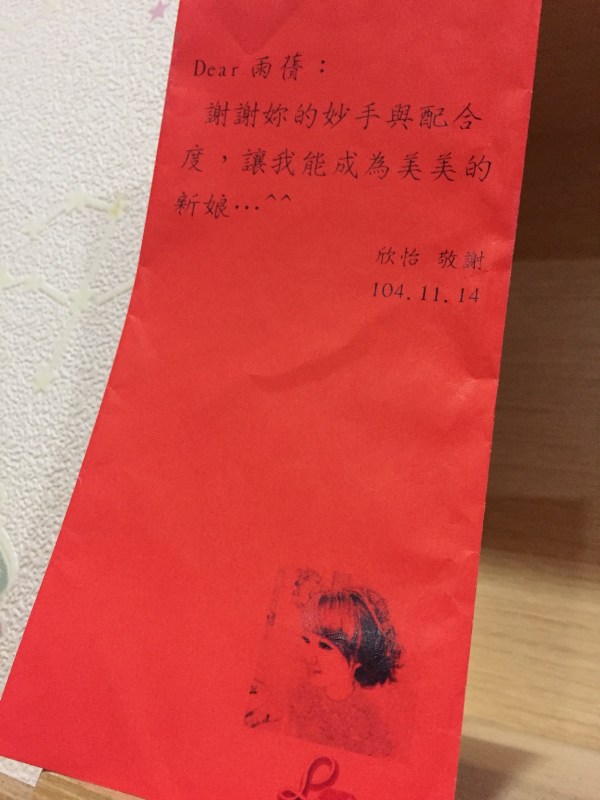 Dear 雨蒨：
謝謝妳的妙手與配合
度，讓我能成為美美的
新娘…^^
欣怡 敬謝
104.11.14